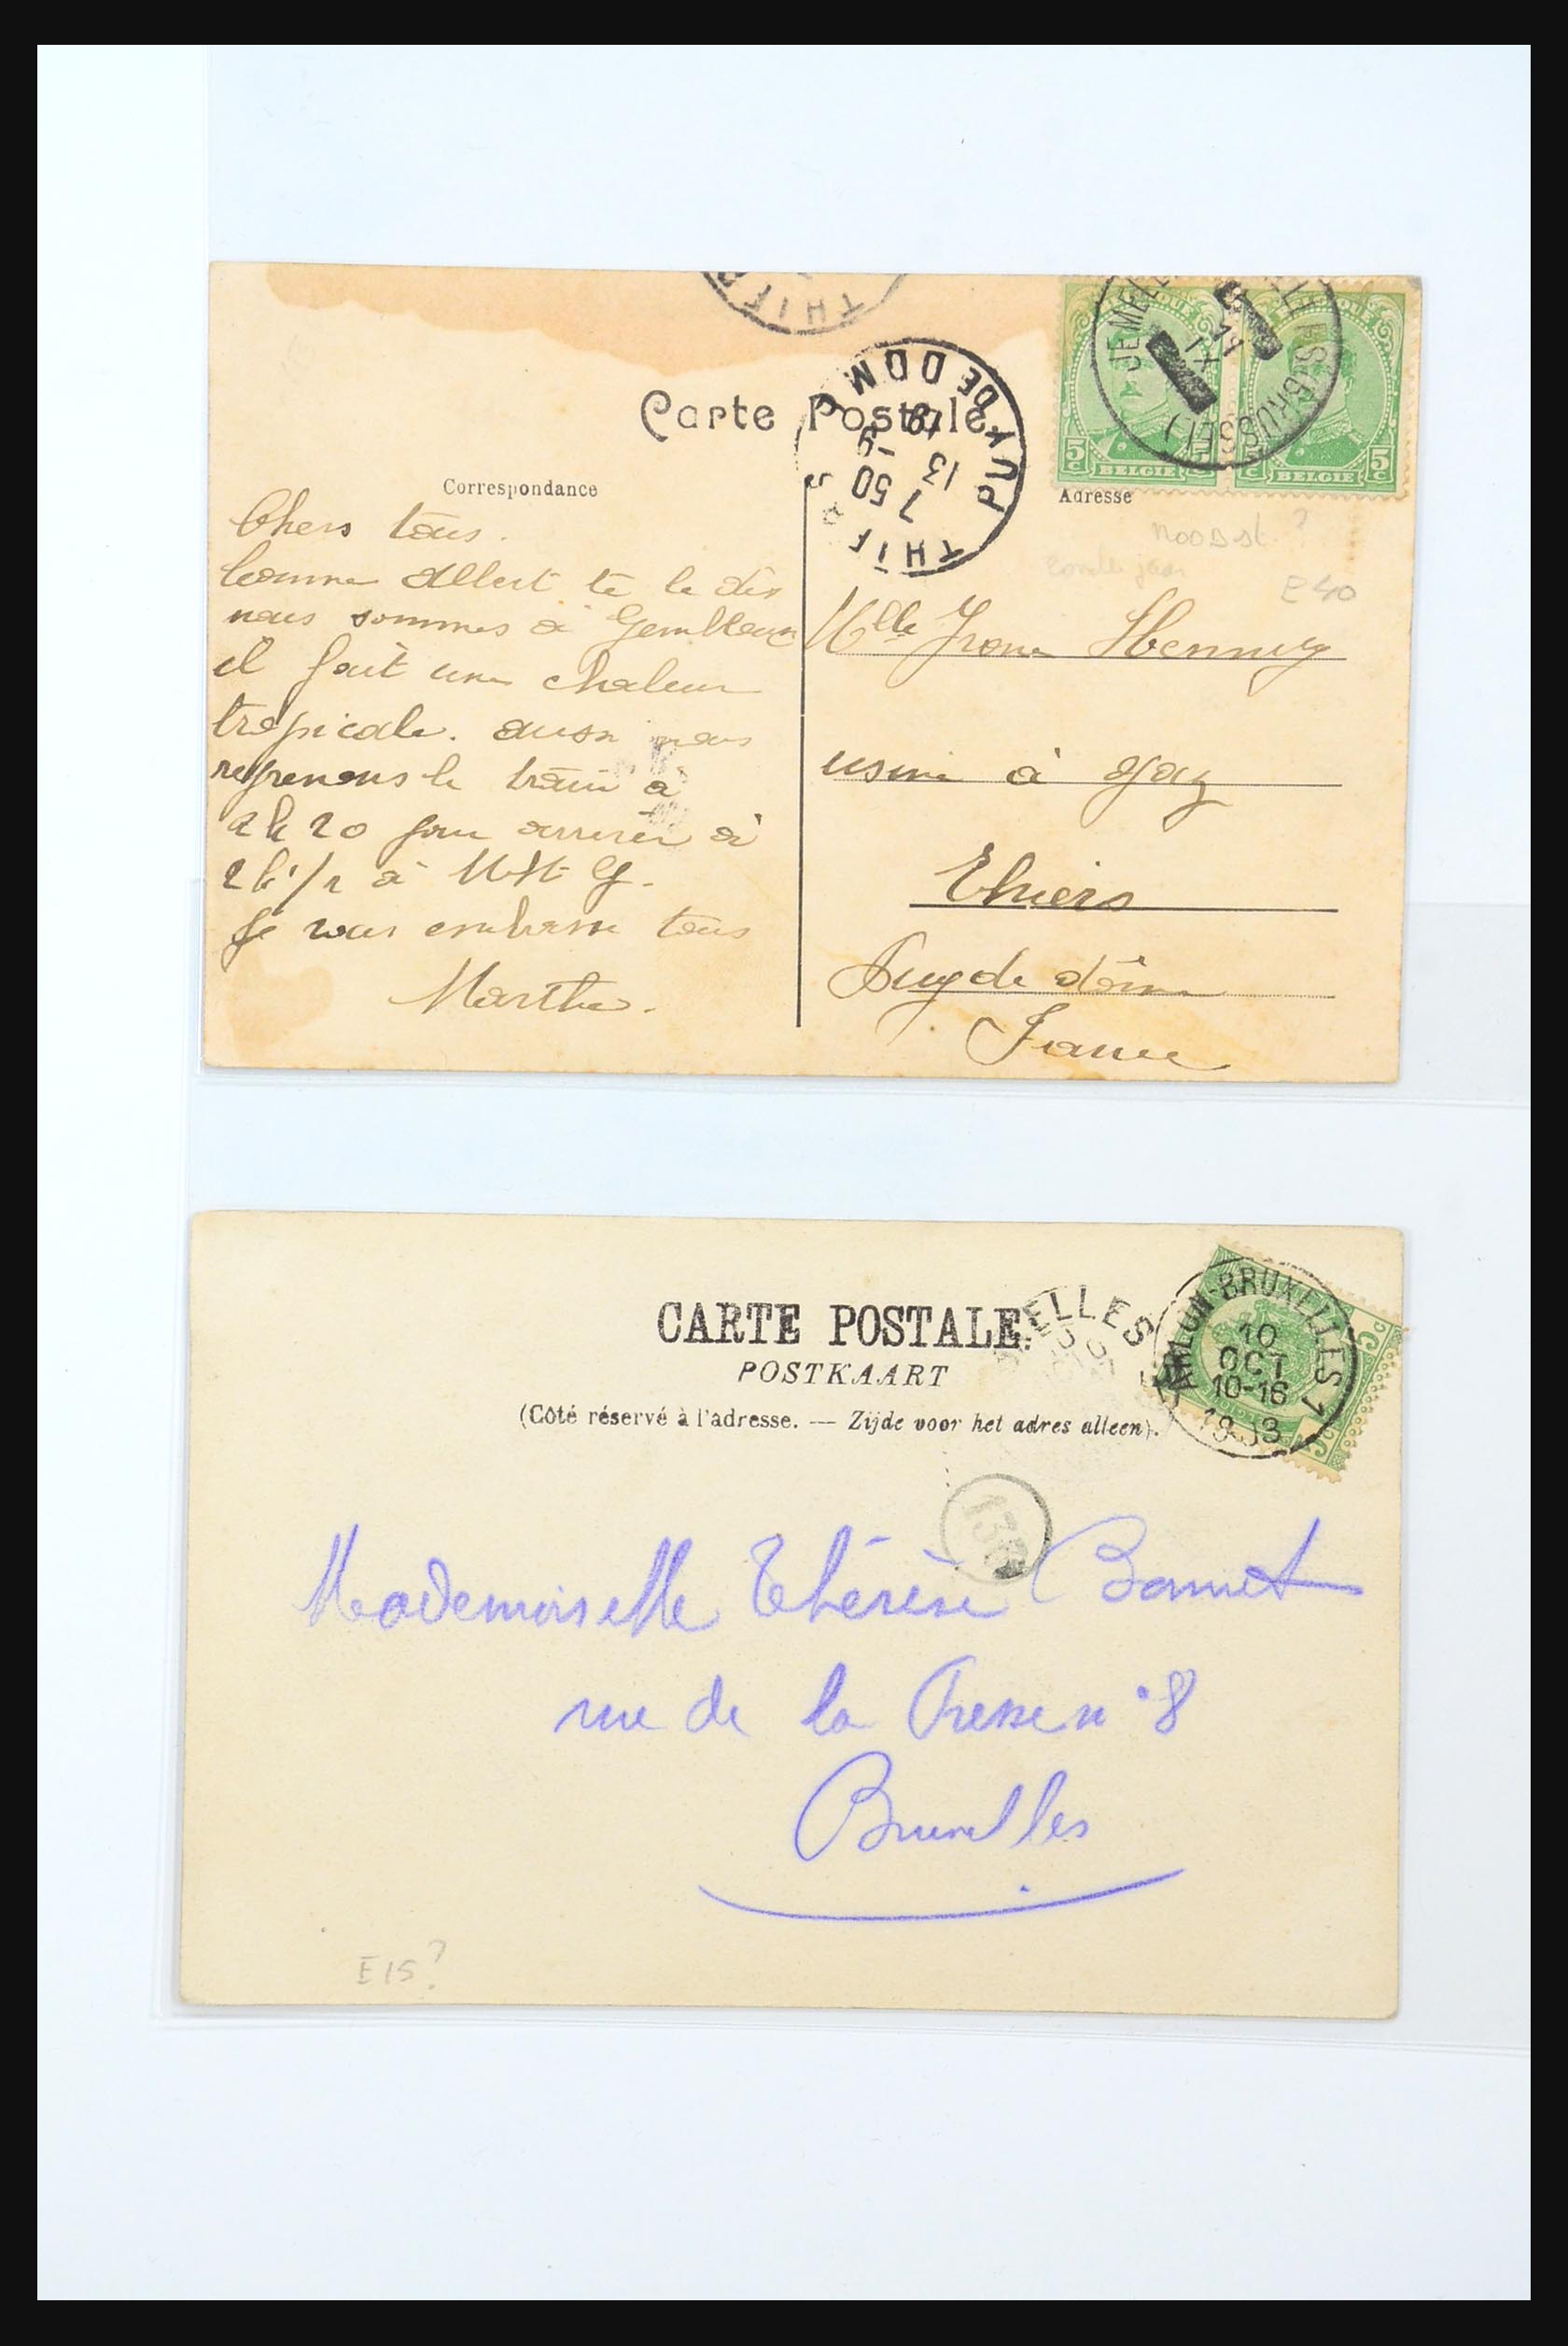 Carte Postale
Correspondance
Adresse
THIERS
PUY DE DOME
7 50
13 -9
19
JEMELLE
BRUSSEL
IX
5c BELGIE 5c
5c BELGIE 5c
noodst. ?
E40
Chers tous.
Comme Albert te le dis
nous sommes à Gembloux
il fait une chaleur
tropicale. aussi nous
reprenons le train à
2 h 20 pour arriver à
2 h 1/2 à M-St-G.
Je vous embrasse tous
Marthe.
Mlle Yvonne
usine à gaz
Thiers
Puy de dôme
France
CARTE POSTALE.
POSTKAART
(Côté réservé à l'adresse. — Zijde voor het adres alleen).
ELLES
ARLON-BRUXELLES 1
10
OCT
10-16
1903
5c
13
Mademoiselle Thérèse Bonnet
rue de la Presse n° 8
Bruxelles
E15?